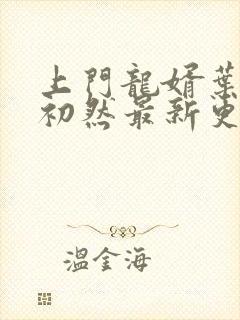 上門龍婿葉
初然最新更
溫金海